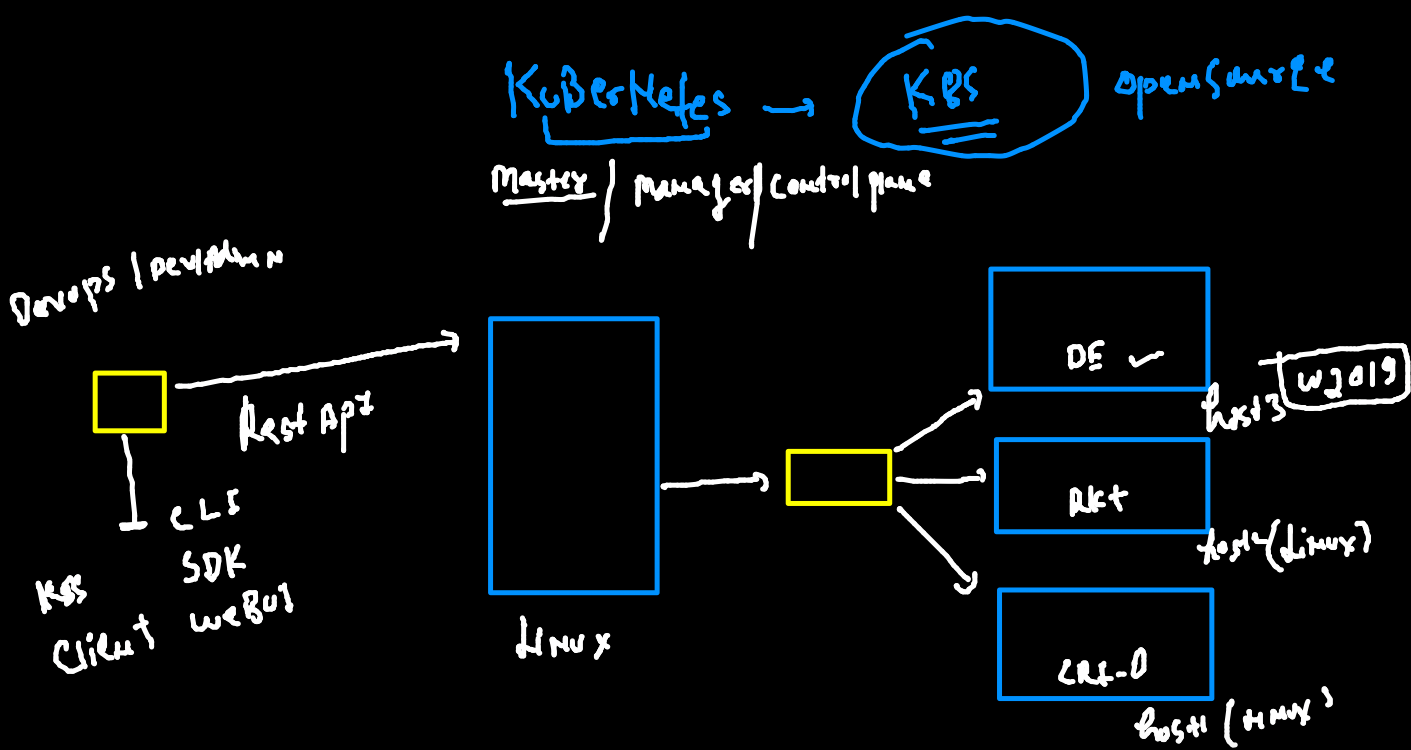 KuBerNetes → K8S openSource
Master / Manager / control plane
Devops / Dev/Admin
Rest ApI
K8S
Client
CLI
SDK
WeBUI
Linux
DE ✓
host3 W2019
RKt
host2 (Linux)
CRI-O
host1 (Linux)